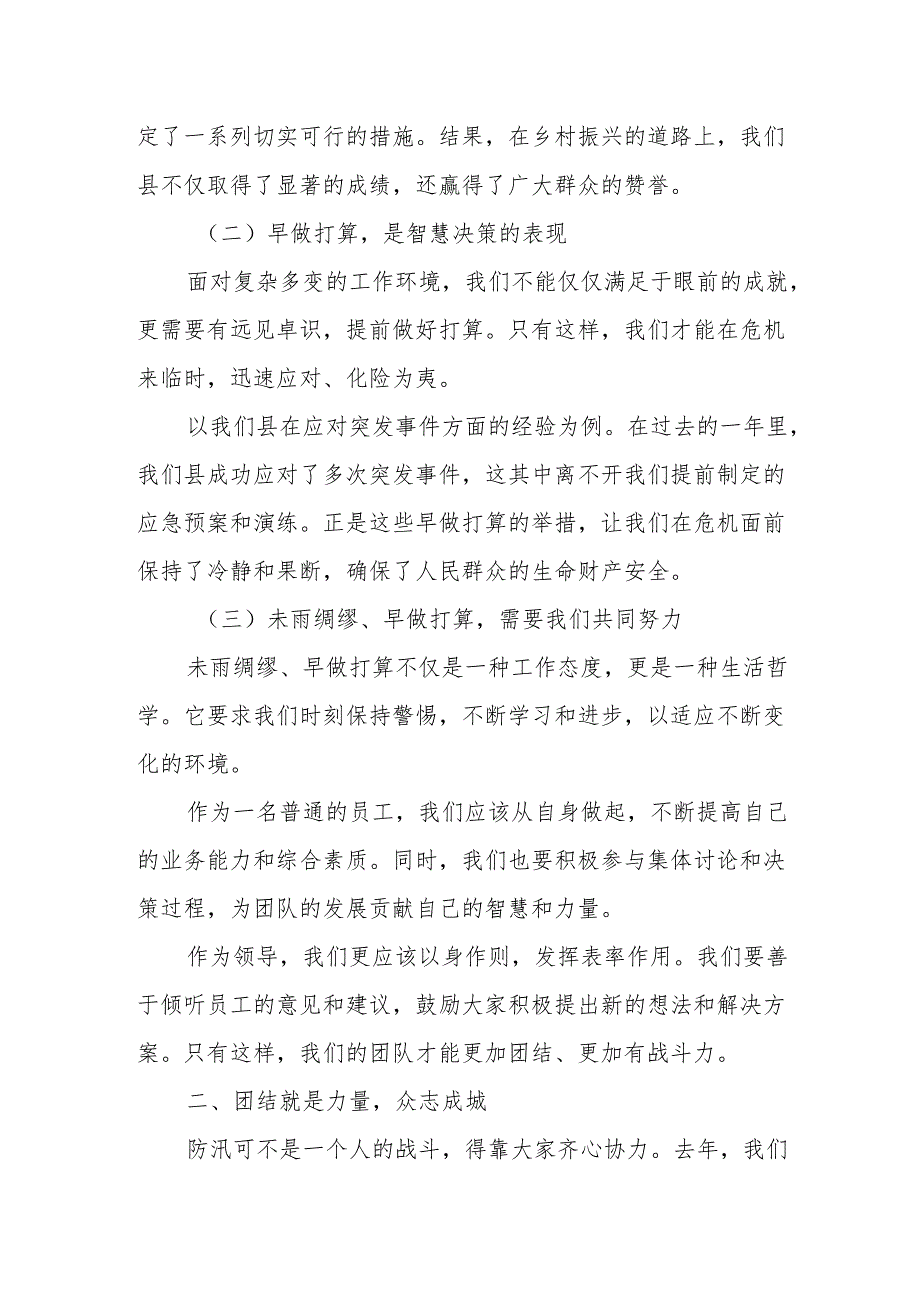 定了一系列切实可行的措施。结果，在乡村振兴的道路上，我们
县不仅取得了显著的成绩，还赢得了广大群众的赞誉。
（二）早做打算，是智慧决策的表现
面对复杂多变的工作环境，我们不能仅仅满足于眼前的成就，
更需要有远见卓识，提前做好打算。只有这样，我们才能在危机
来临时，迅速应对、化险为夷。
以我们县在应对突发事件方面的经验为例。在过去的一年里，
我们县成功应对了多次突发事件，这其中离不开我们提前制定的
应急预案和演练。正是这些早做打算的举措，让我们在危机面前
保持了冷静和果断，确保了人民群众的生命财产安全。
（三）未雨绸缪、早做打算，需要我们共同努力
未雨绸缪、早做打算不仅是一种工作态度，更是一种生活哲
学。它要求我们时刻保持警惕，不断学习和进步，以适应不断变
化的环境。
作为一名普通的员工，我们应该从自身做起，不断提高自己
的业务能力和综合素质。同时，我们也要积极参与集体讨论和决
策过程，为团队的发展贡献自己的智慧和力量。
作为领导，我们更应该以身作则，发挥表率作用。我们要善
于倾听员工的意见和建议，鼓励大家积极提出新的想法和解决方
案。只有这样，我们的团队才能更加团结、更加有战斗力。
二、团结就是力量，众志成城
防汛可不是一个人的战斗，得靠大家齐心协力。去年，我们